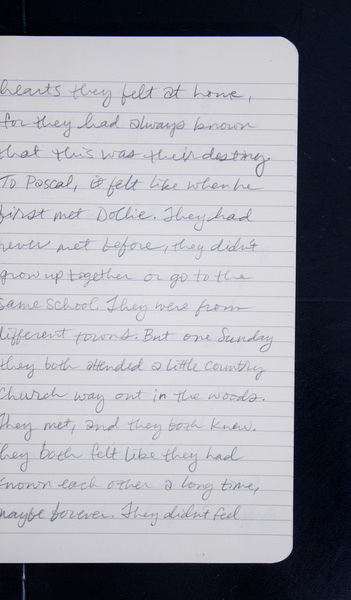 hearts they felt at home,
for they had always known
that this was their destiny.
To Pascal, it felt like when he
first met Dollie. They had
never met before, they didn't
grow up together or go to the
same school. They were from
different towns. But one Sunday
they both attended a little country
church way out in the woods.
They met, and they both knew.
They both felt like they had
known each other a long time,
maybe forever. They didn't feel